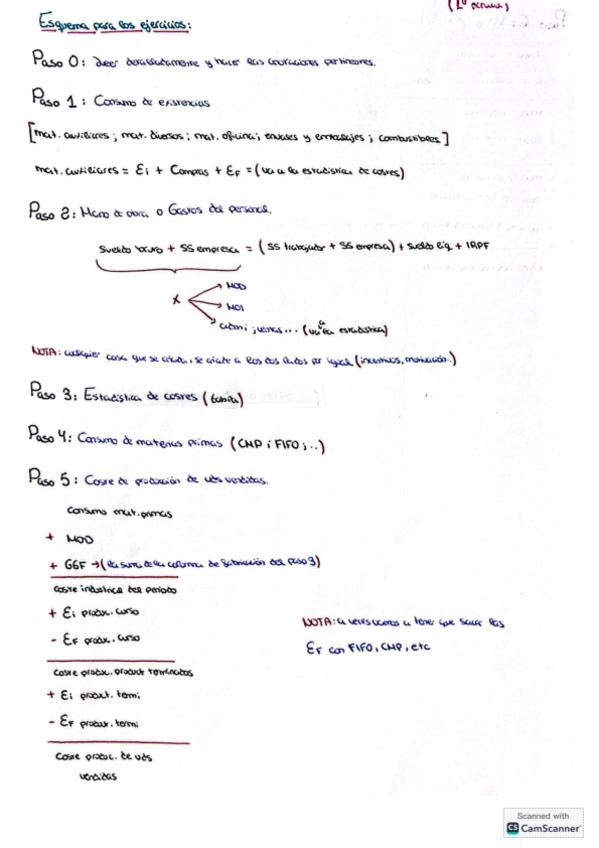 (1º parcial)
Esquema para los ejercicios:
Paso 0: Leer detalladamente y hacer las anotaciones pertinentes.
Paso 1: Consumo de existencias
[mat. auxiliares; mat. diversos; mat. oficina; envases y embalajes; combustibles]
mat. auxiliares = Ei + Compras + EF = (va a la estadística de costes)
Paso 2: Mano de obra o Gastos del personal.
Sueldo bruto + SS empresa = (SS trabajador + SS empresa) + sueldo liq. + IRPF
x
MOD
MOI
admi; ventas... (va a la estadística)
NOTA: cualquier cosa que se añada, se añade a los dos lados por igual (incentivos, motivación..)
Paso 3: Estadística de costes (tabla)
Paso 4: Consumo de materias primas (CMP; FIFO; ..)
Paso 5: Coste de producción de uds vendidas.
Consumo mat. primas
+ MOD
+ GGF → (la suma de la columna de fabricación del paso 3)
Coste industrial del periodo
+ Ei produc. curso
- EF produc. curso
NOTA: a veces vamos a tener que sacar las
EF con FIFO, CMP, etc
Coste produc. product terminados
+ Ei product. termi
- EF produt. termi
Coste produc. de uds
vendidas
Scanned with
CS CamScanner